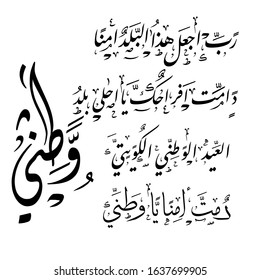 رَبِّ اجْعَلْ هَذَا البَلَدَ امِنًا
دَامَتْ افْرَاحُكْ يَا احْلَى بَلَدْ
العِيْدِ الوَطَنِيِّ الكُوَيْتِيِّ
دُمْتَ اَمِنًا يَا وَطَنِيْ
وَطَنِي
shutterstock.com • 1637699905